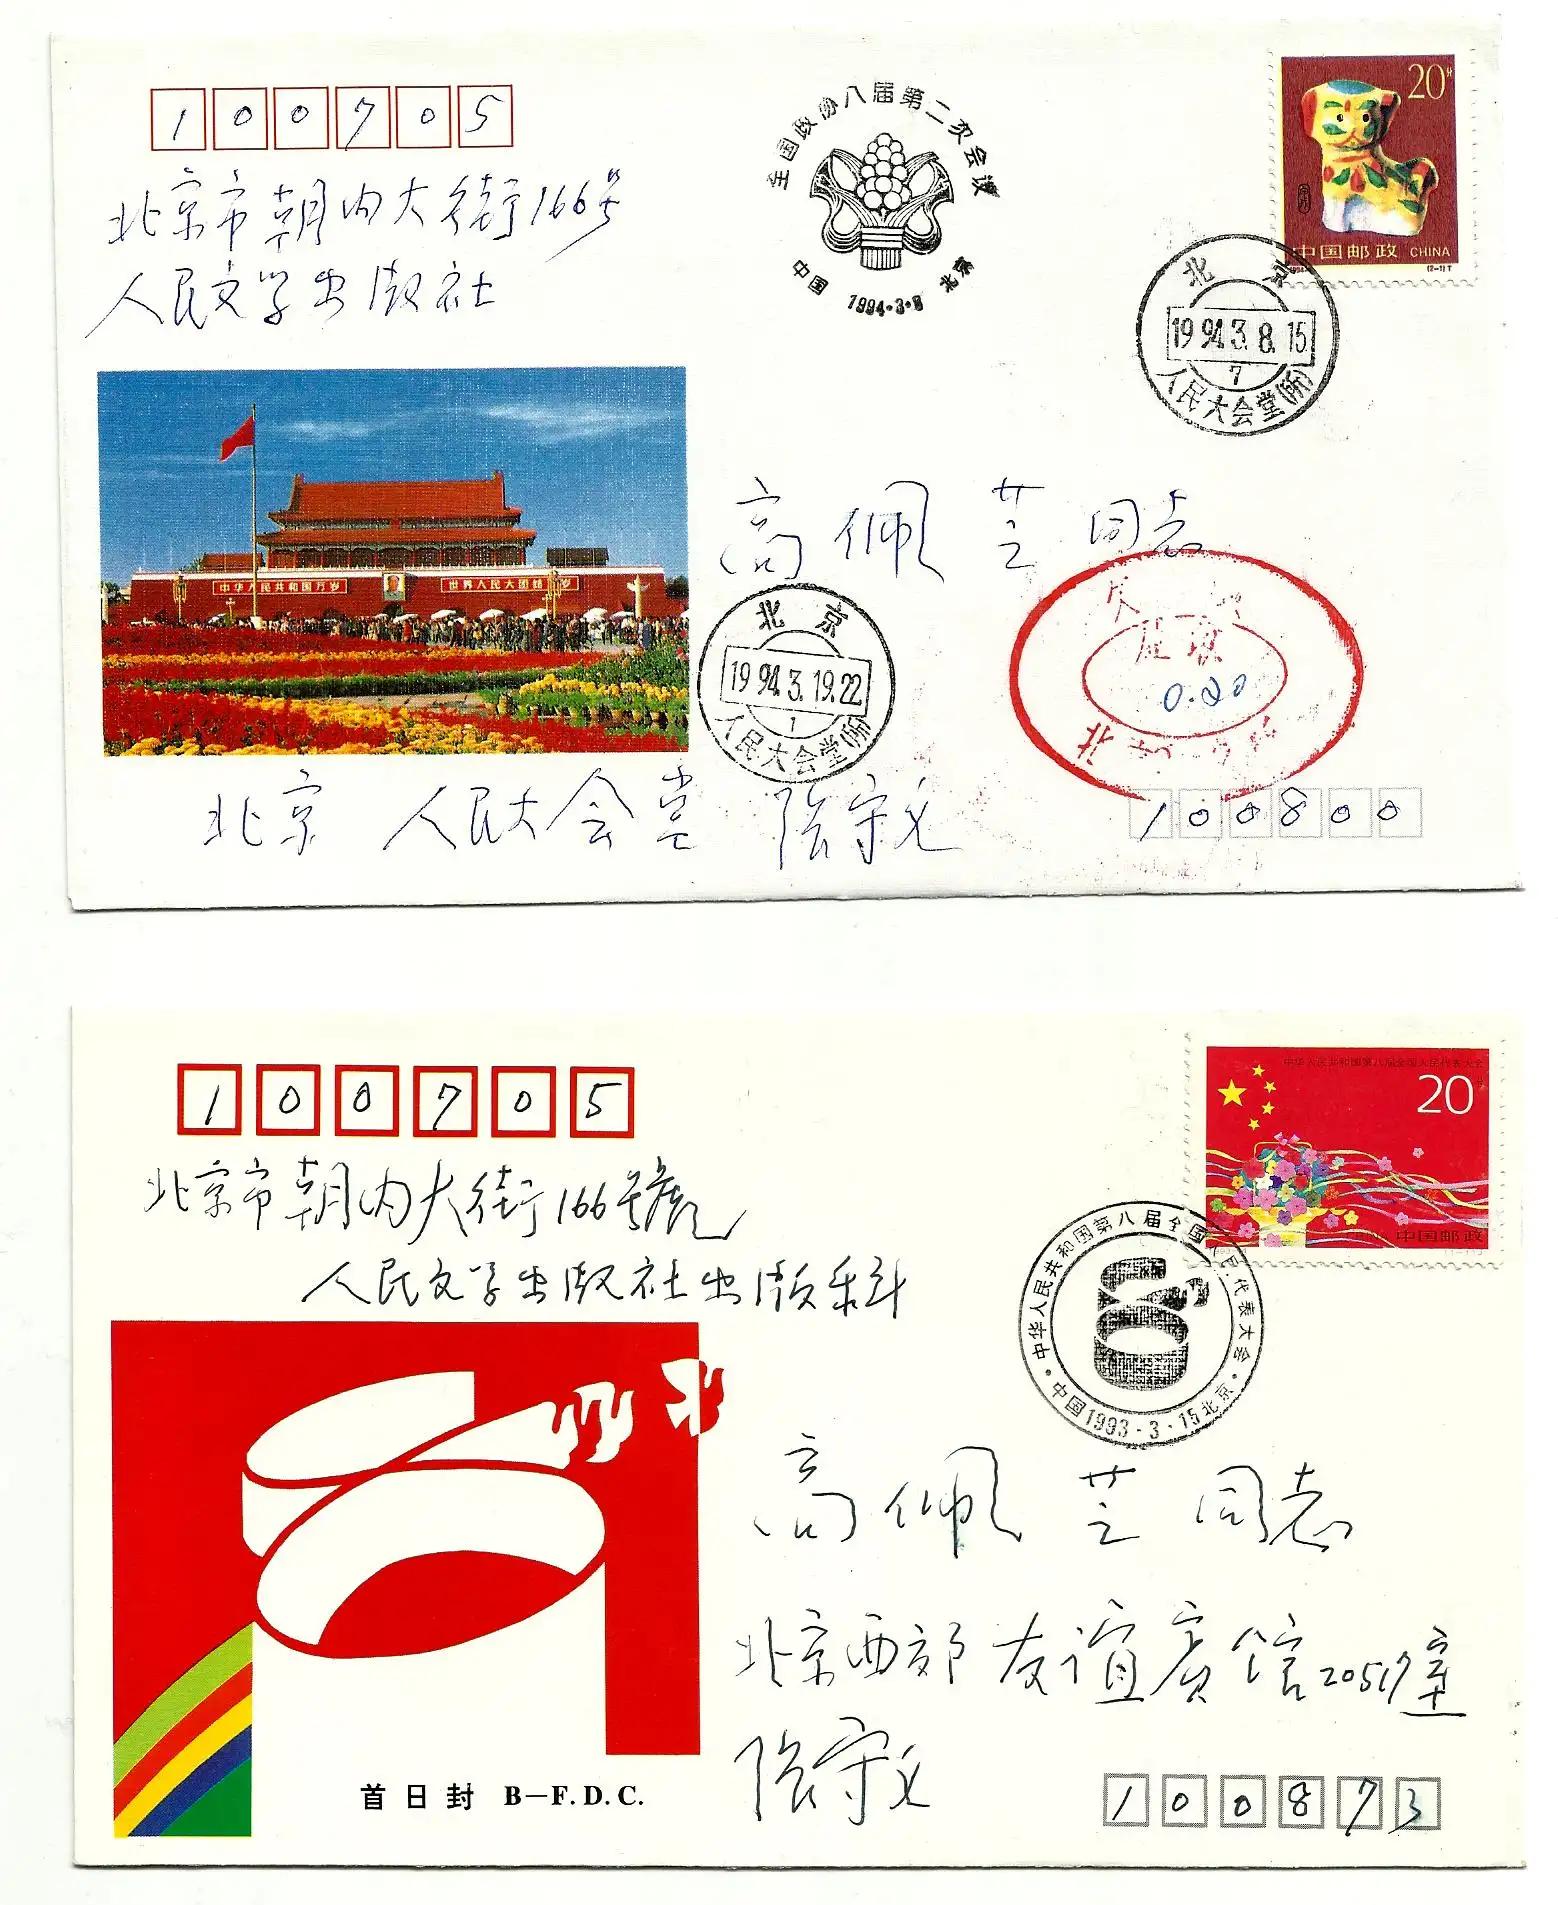 100705
北京市朝内大街166号
人民文学出版社
全国政协八届第二次会议
中国 1994·3·8 北京
20分
中国邮政 CHINA
(2-1)T
北京
1994.3.8.15
7
人民大会堂(所)
中华人民共和国万岁
世界人民大团结万岁
高佩芝同志
北京
1994.3.19.22
1
人民大会堂(所)
0.20
北京 人民大会堂
100800
100705
北京市朝内大街166号
人民文学出版社出版科
中华人民共和国第八届全国人民代表大会
20分
中国邮政
中华人民共和国第八届全国人民代表大会
中国1993-3·15北京
高佩芝同志
北京西郊友谊宾馆20517室
首日封 B-F.D.C.
100873